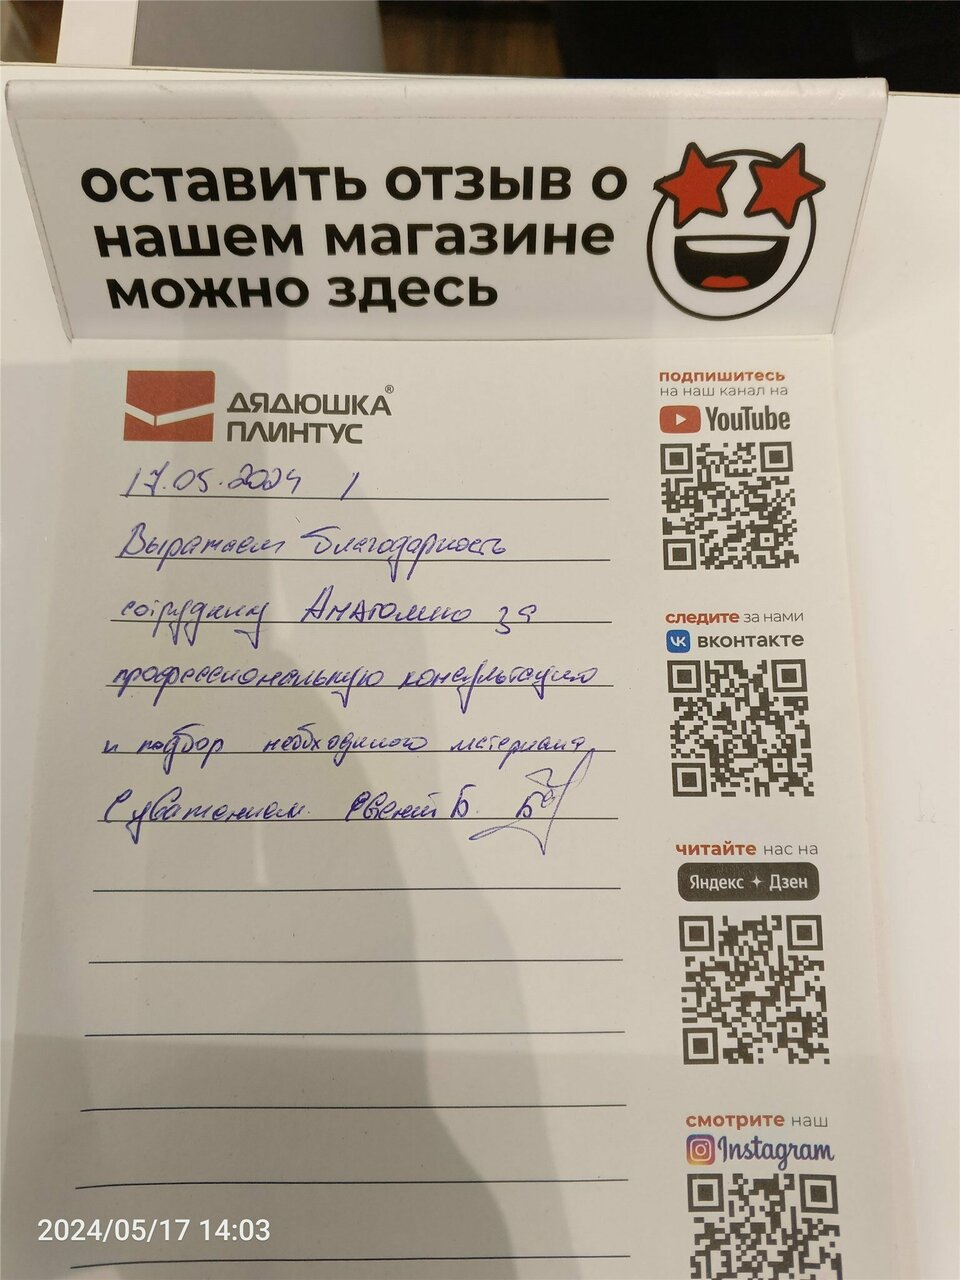 оставить отзыв о
нашем магазине
можно здесь
ДЯДЮШКА®
ПЛИНТУС
17.05.2024
Выражаем благодарность
сотруднику Анатолию за
профессиональную консультацию
и подбор необходимого материала
С уважением Евгений Б.
подпишитесь
на наш канал на
YouTube
следите за нами
вконтакте
читайте нас на
Яндекс Дзен
смотрите наш
Instagram
2024/05/17 14:03